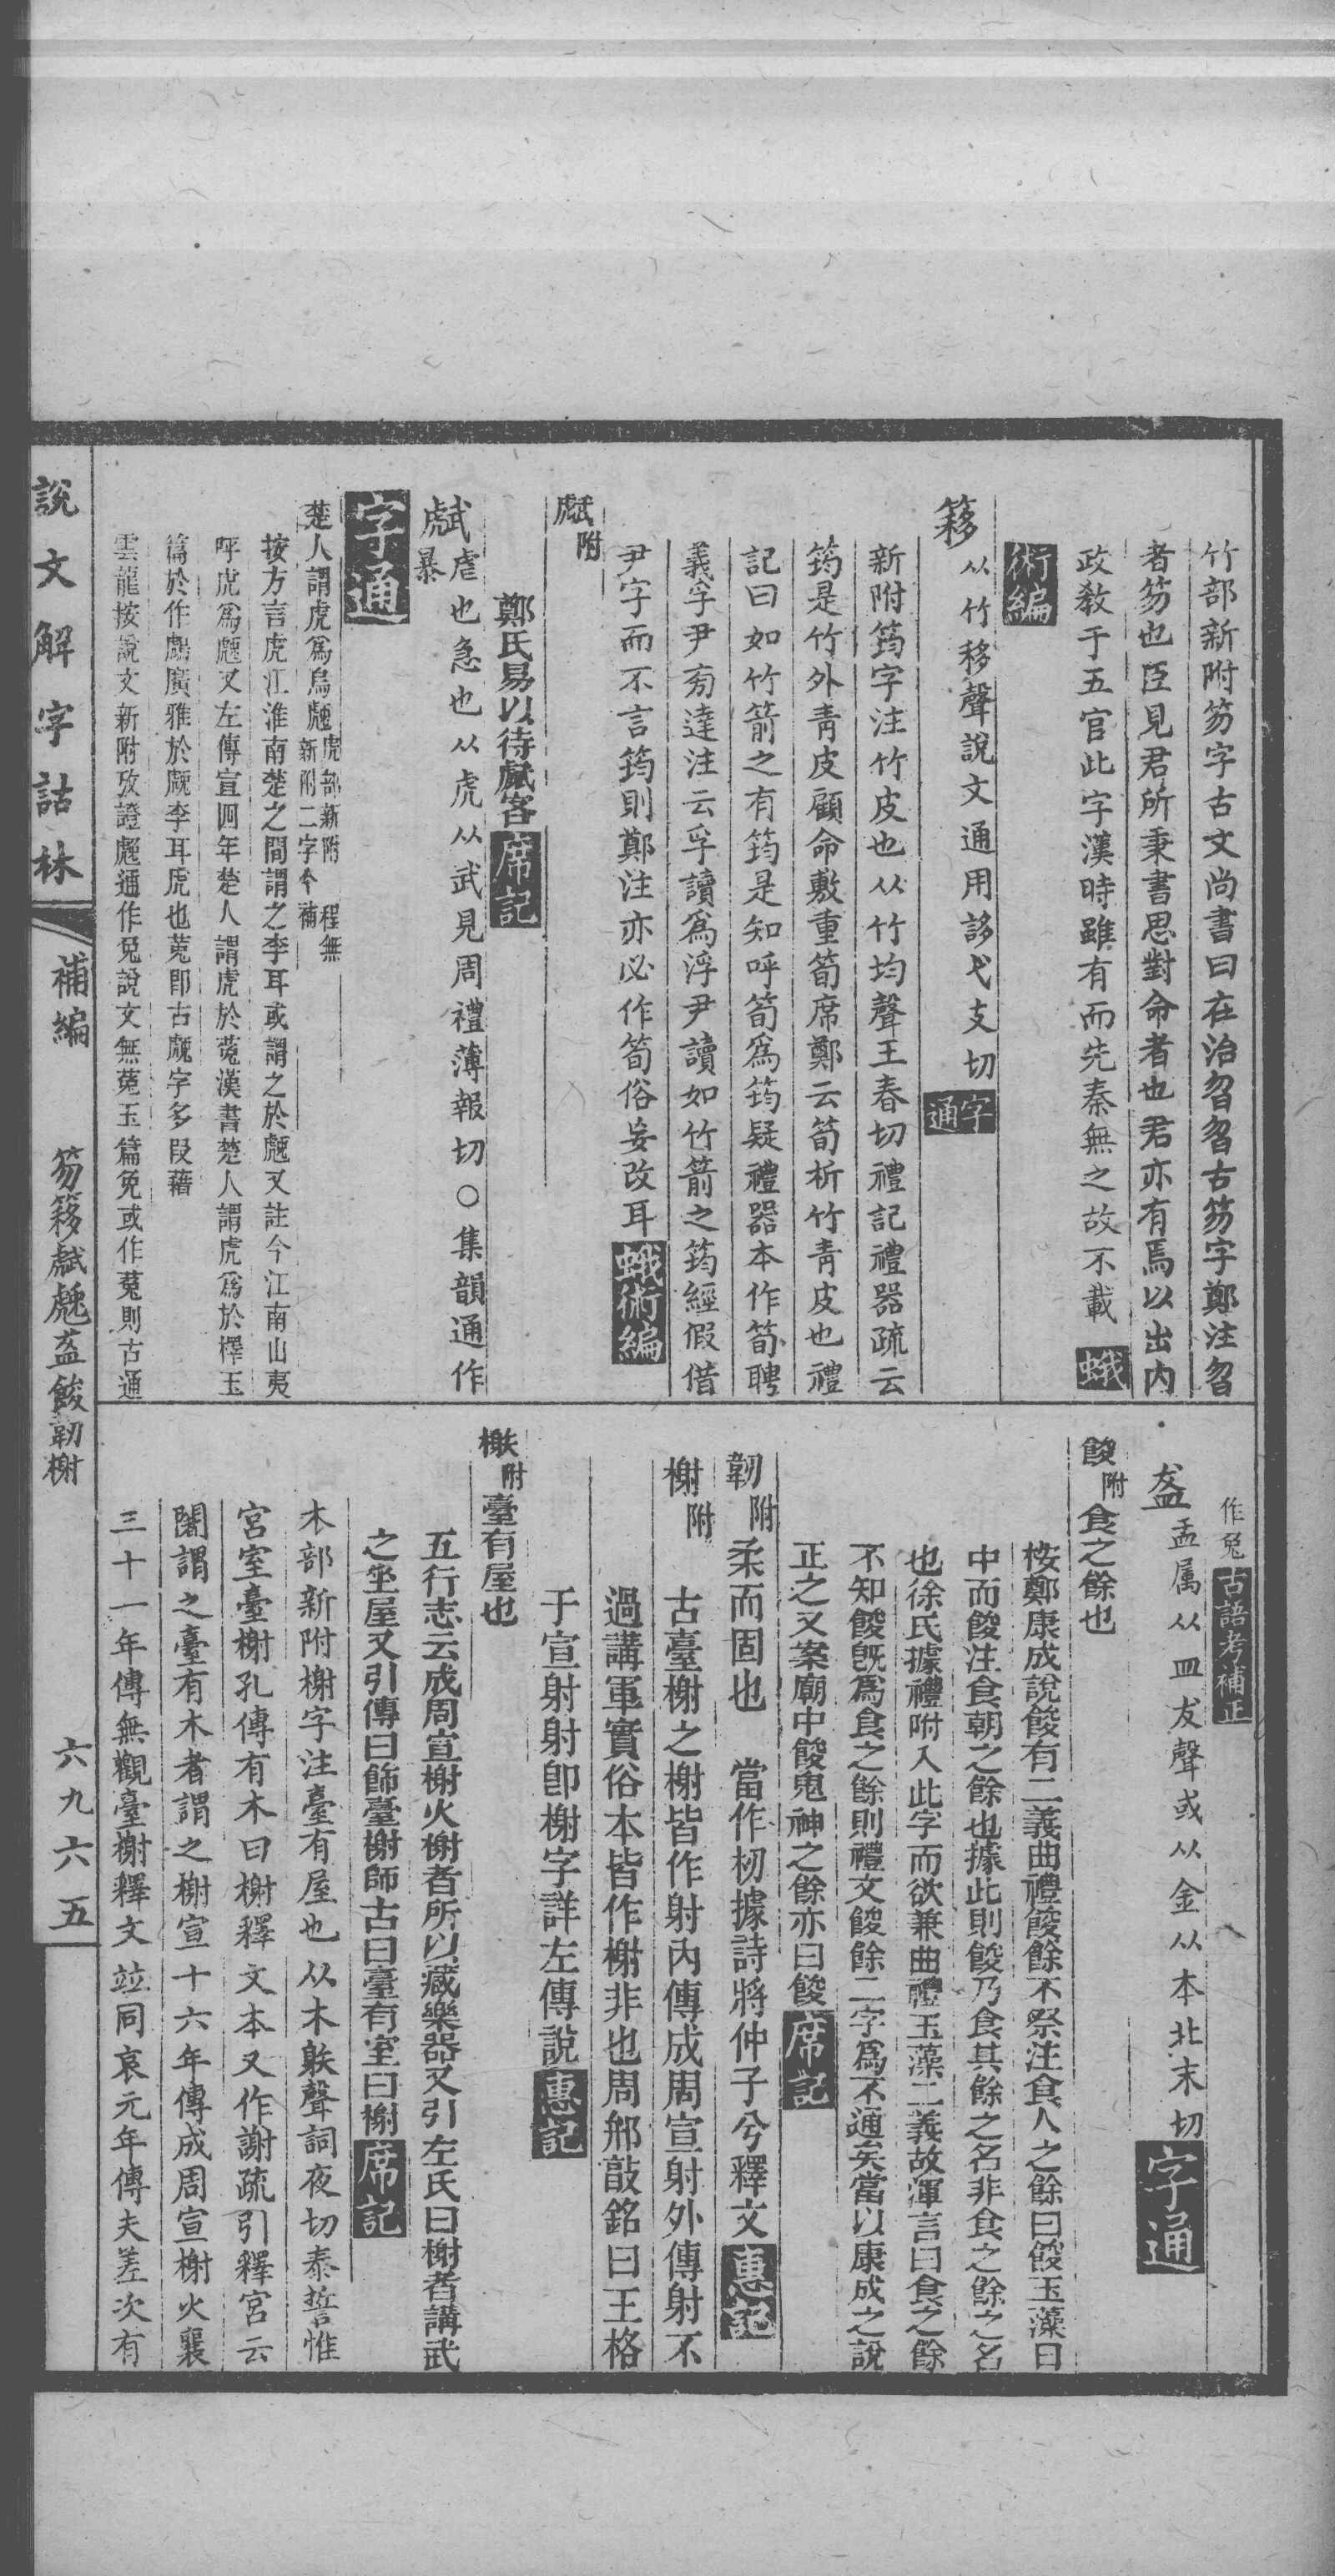 竹部新附笏字古文尚書曰在治曶曶古笏字鄭注曶
者笏也臣見君所秉書思對命者也君亦有焉以出內
政教于五官此字漢時雖有而先秦無之故不載 蛾
術編
簃 从竹移聲說文通用誃弋支切 字通
新附筠字注竹皮也从竹均聲王春切禮記禮器疏云
筠是竹外青皮顧命敷重筍席鄭云筍析竹青皮也禮
記曰如竹箭之有筠是知呼筍爲筠疑禮器本作筍聘
義孚尹旁達注云孚讀爲浮尹讀如竹箭之筠經假借
尹字而不言筠則鄭注亦必作筍俗妄改耳 蛾術編
虣附
鄭氏易以待虣客 席記
虣 虐也急也从虎从武見周禮薄報切○集韻通作
暴
字通
楚人謂虎爲烏䖘 虎部新附 程無
新附二字今補
按方言虎江淮南楚之間謂之李耳或謂之於䖘又註今江南山夷
呼虎爲䖘又左傳宣四年楚人謂虎於菟漢書楚人謂虎爲於檡玉
篇於作䖚廣雅於䖘李耳虎也菟卽古䖘字多叚藉
雲龍按說文新附攷證䖘通作兔說文無菟玉篇兔或作菟則古通
作兔 古語考補正
盋 盂属从皿犮聲或从金从本北末切 字通
餕附 食之餘也
桉鄭康成說餕有二義曲禮餕餘不祭注食人之餘曰餕玉藻日
中而餕注食朝之餘也據此則餕乃食其餘之名非食之餘之名
也徐氏據禮附入此字而欲兼曲禮玉藻二義故渾言曰食之餘
不知餕旣爲食之餘則禮文餕餘二字爲不通矣當以康成之說
正之又案廟中餕鬼神之餘亦曰餕 席記
韌附 柔而固也 當作杒據詩將仲子兮釋文 惠記
榭附
古臺榭之榭皆作射內傳成周宣射外傳射不
過講軍實俗本皆作榭非也周䢵敦銘曰王格
于宣射射卽榭字詳左傳說 惠記
榭附 臺有屋也
五行志云成周宣榭火榭者所以藏樂器又引左氏曰榭者講武
之坐屋又引傳曰飾臺榭師古曰臺有室曰榭 席記
木部新附榭字注臺有屋也从木䠶聲詞夜切泰誓惟
宮室臺榭孔傳有木曰榭釋文本又作謝疏引釋宮云
闍謂之臺有木者謂之榭宣十六年傳成周宣榭火襄
三十一年傳無觀臺榭釋文竝同哀元年傳夫差次有
說文解字詁林 補編 笏簃虣䖘盋餕韌榭 六九六五